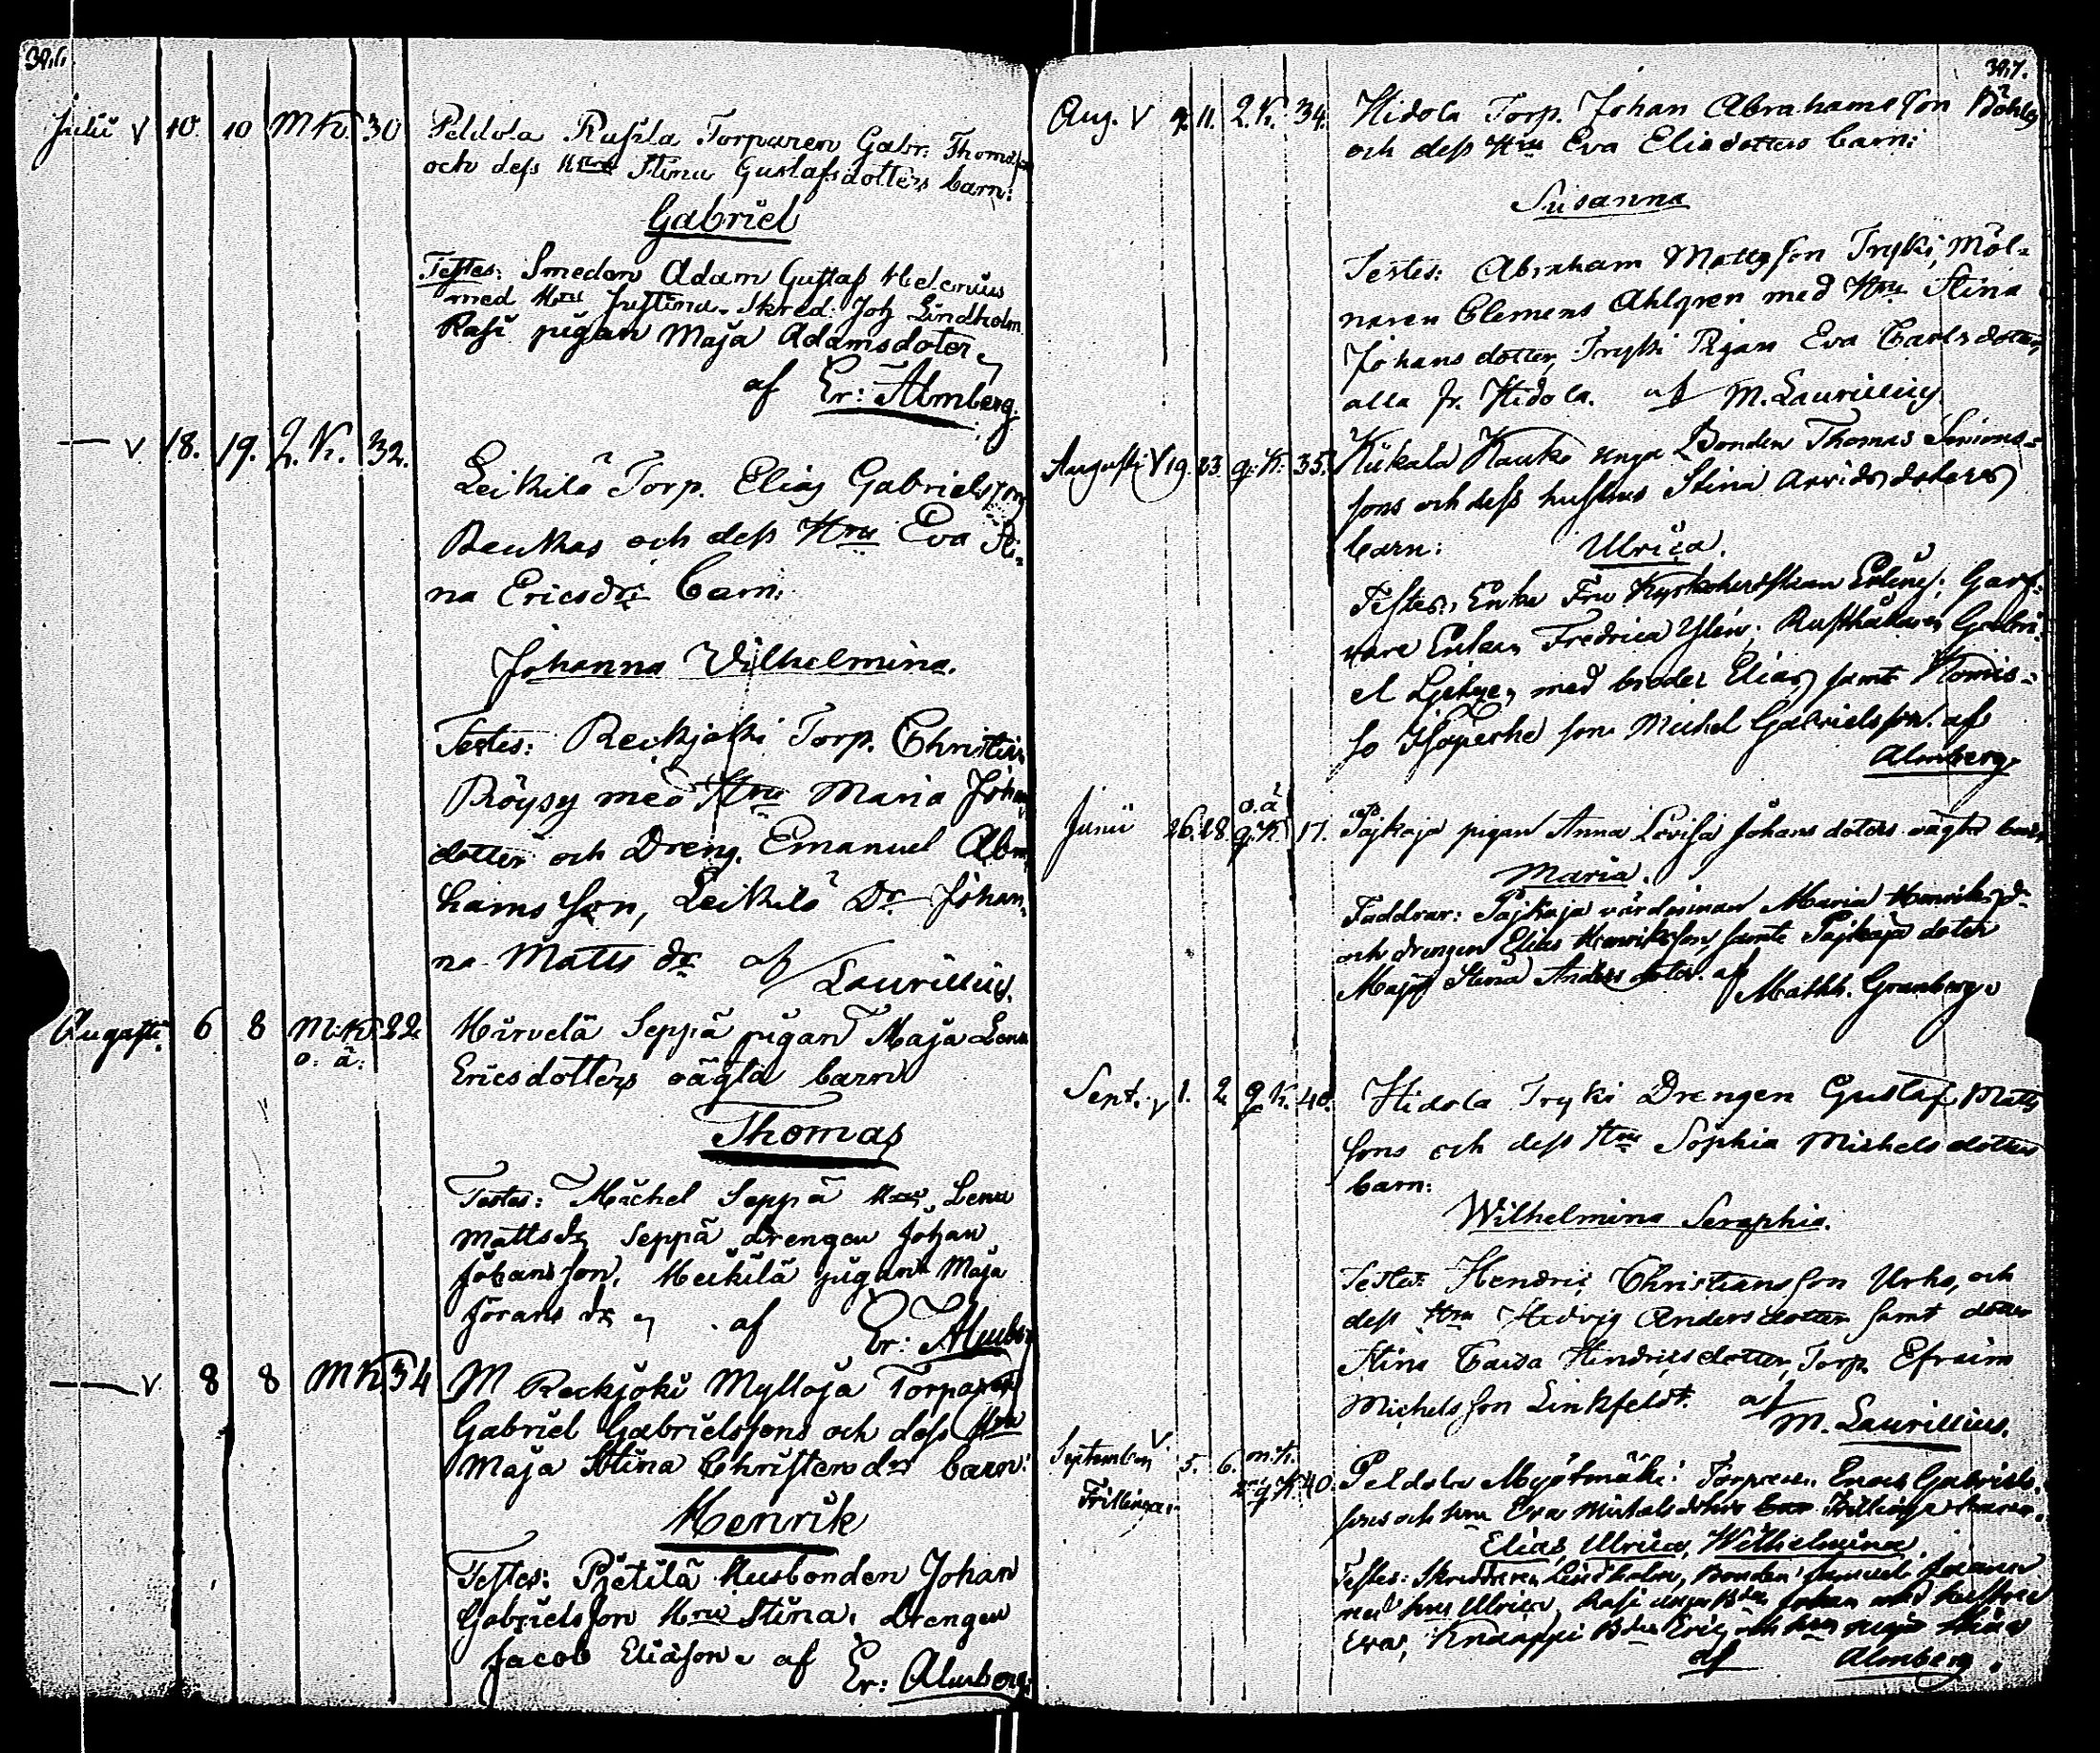 Julii V 10. 10 M K. 30 Peldola Rusila Torparen Gabr. Thomass
och dess Hru Stina Gustafsdotters barn:
Gabriel
Testes: Smeden Adam Gustaf Helenius
med Hru Justina. Skred. Joh Lindholm
Rasi pigan Maja Adamsdoter
af Er: Almberg.
— V 18. 19. Q. K. 32. Leikilä Torp. Elias Gabrielsson
Reukas och dess Hru Eva Sti-
na Ericsdr barn:
Johanna Vilhelmina.
Testes: Reckjoki Torp. Christian
Röysy med Hru Maria Johan
dotter och Dreng. Emanuel Abra
hamsson, Leikilä Dr Johan-
na Matts dr af Laurillius.
Augusti. 6 8 M. K. 22 Hirvelä Seppä pigan Maja Lena
o. ä. Ericsdotters oägta barn
Thomas
Testes: Michel Seppä Hru Lena
Mattsdr Seppä drengen Johan
Johansson, Heikilä pigan Maja
Jörans dr af Er: Almber
— V 8 8 M K. 34 M Reckjoki Mylloja Torparen
Gabriel Gabrielssons och dess Hru
Maja Stina Christersdrs barn:
Henrik
Testes: Pietilä Husbonden Johan
Gabrielsson Hru Stina. drengen
Jacob Eliasson af Er: Almberg.
Aug. V 9. 11. Q. K. 34. Hidola Torp. Johan Abrahamsson
och dess Hru Eva Eliedotters barn:
Susanna
Testes: Abraham Mattsson Tryki, Möl-
naren Clemens Ahlgren med Hru Stina
Johansdotter, Tryki Pigan Eva Carlsdotter,
alla fr. Hidola. af M. Laurillius
Augusti V 19. 23 q. K. 35. Kiikala Kauko unga Bonden Thomas Simons-
sons och dess hustrus Stina Arvidsdoters
barn: Ulrica.
Testes: Enke Fru Kyrkoherdskan Garf-
vare Enkan Fredrica Ylen; Rusthållaren Gabri
el med broder Elias samt Komis-
so son Michel Gabrielsson. af
Almberg.
Junii 26. 28. o. ä. q. K. 17. Pajkaja pigan Anna Lovisa Johans doters oägta barn
Maria.
Faddrar: Pajkaja värdinnan Maria Henriksd-
och drengen Elias Henriksson samt Pajkaja doter
Maja Stina Andersdoter. af Mathh. Granberg.
Sept. V 1. 2 q K. 40. Hidola Tryki Drengen Gustaf Matts
sons och dess Hru Sophia Michelsdotters
barn:
Wilhelmina Seraphia.
Testes: Hendric Christiansson Urho, och
dess Hru Hedvig Andersdotter samt dotter
Stina Caisa Hindricsdotter, Torp. Efraim
Michelsson Linkfeldt. af M. Laurillius.
September V. 5. 6. m. K. q K 40. Peldola Myötmäki Torparen Enoch Gabriels-
Trillingar. sons och hru Eva Michelsdoters Trillinge barn.
Elias, Ulrica, Wilhelmina.
Testes: Skreddaren Lindholm, Bonden Samuel
med hru Ulrica, Rasi unga Bden Johan med hustru
Eva, Knaappi Bden Eric och hru Maja Stina
af Almberg.